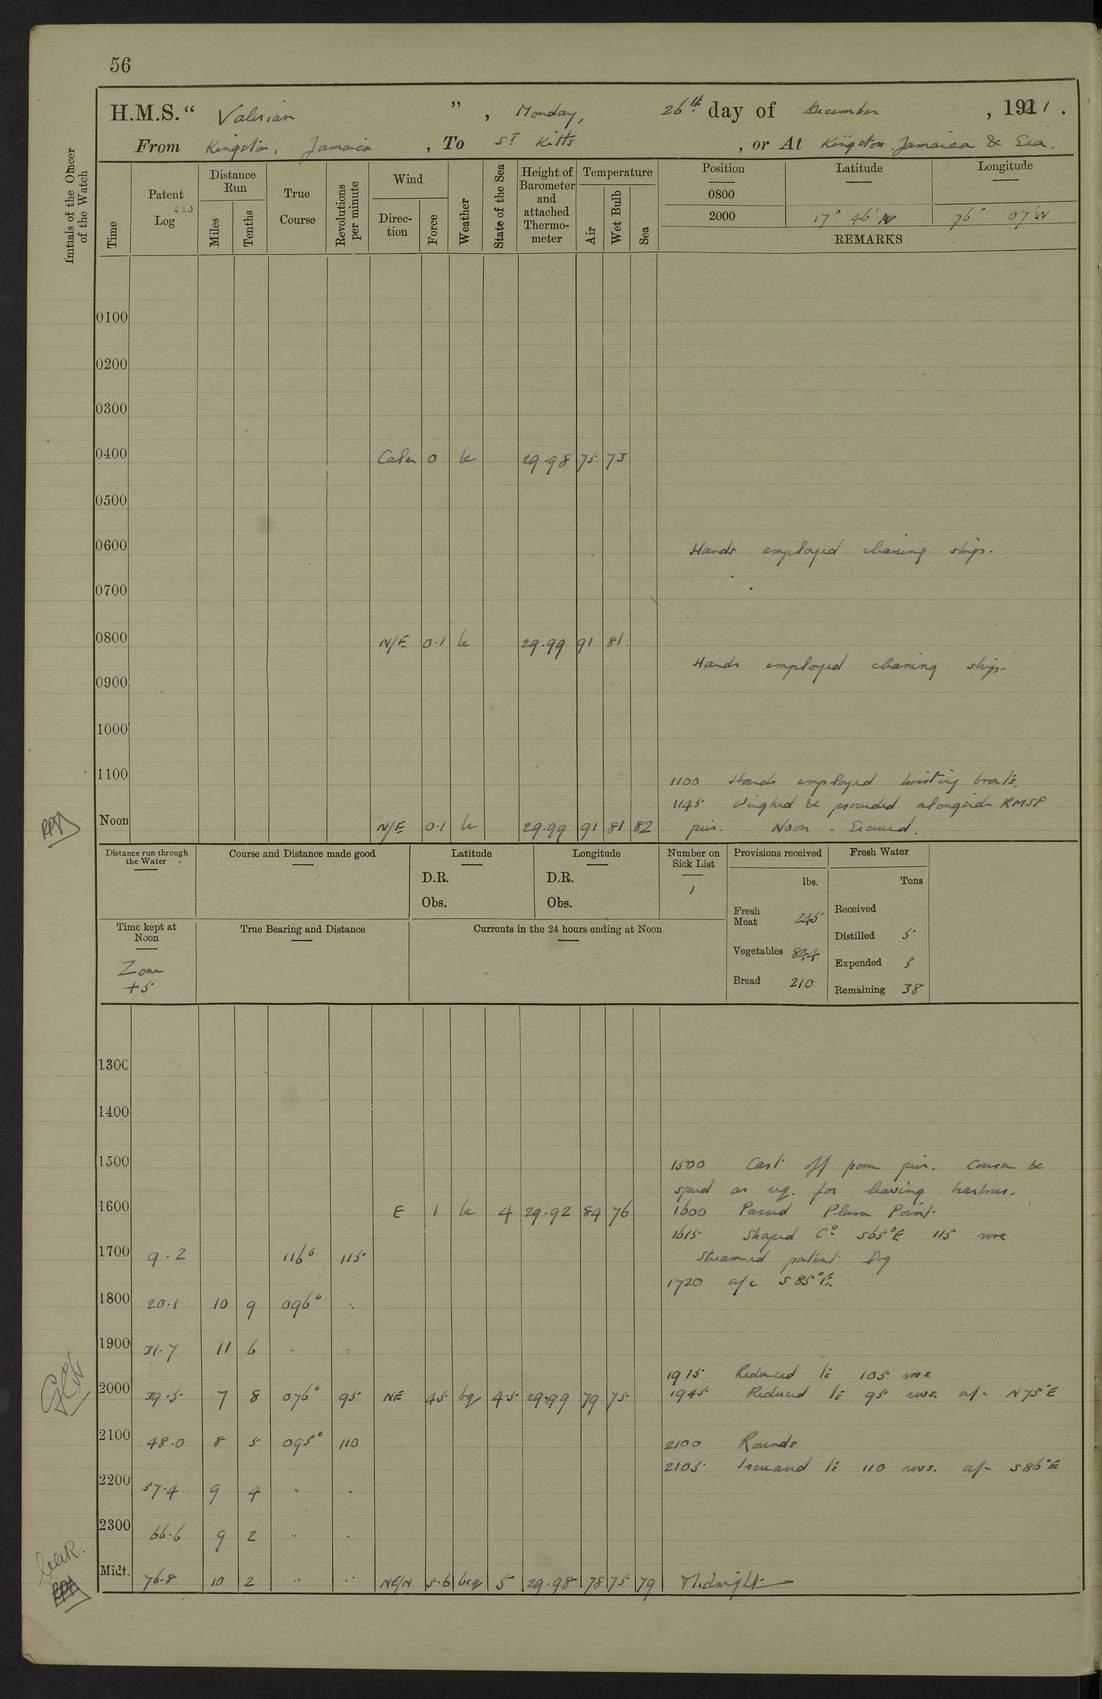 56
H.M.S. “ Valerian ” , Monday, 26th day of December , 1921 .
From Kingston, Jamaica , To St Kitts , or At Kingston Jamaica & Sea.
Initials of the Officer of the Watch
Time
Patent Log
Distance Run
Miles
Tenths
True Course
Revolutions per minute
Wind
Direc- tion
Force
Weather
State of the Sea
Height of Barometer and attached Thermo- meter
Temperature
Air
Wet Bulb
Sea
Position Latitude Longitude
0800
2000 17° 46' N 76° 07' W
REMARKS
0100
0200
0300
0400 Calm 0 b 29.98 75 73
0500
0600 Hands employed cleaning ship.
0700
0800 N/E 0.1 b 29.99 91 81
Hands employed cleaning ship.
0900
1000
1100 1100 Hands employed hoisting boats.
1145 Weighed & proceeded alongside RMSP
Noon N/E 0.1 b 29.99 91 81 82 pier. Noon - Secured.
Distance run through the Water
Course and Distance made good
Latitude
D.R.
Obs.
Longitude
D.R.
Obs.
Number on Sick List
1
Provisions received
lbs.
Fresh Meat 245
Vegetables 844
Bread 210
Fresh Water
Tons
Received
Distilled 5
Expended 5
Remaining 38
Time kept at Noon
Zone
+5
True Bearing and Distance
Currents in the 24 hours ending at Noon
1300
1400
1500 1500 Cast off from pier. Course &
speed as req. for leaving harbour.
1600 E 1 b 4 29.92 84 76 1600 Passed Plum Point.
1615 Shaped Co S65°E 115 revs
1700 9.2 116° 115 Streamed patent log
1720 a/c S85°E.
1800 20.1 10 9 096° "
1900 31.7 11 6 " "
1915 Reduced to 105 revs
2000 39.5 7 8 076° 95 NE 4.5 bq 4.5 29.99 79 75 1945 Reduced to 95 revs. a/c N75°E
2100 48.0 8 5 095° 110 2100 Rounds
2105 Increased to 110 revs. a/c S86°E
2200 57.4 9 4 " "
2300 66.6 9 2 " "
Midt. 76.8 10 2 " " NE/N 5.6 bcq 5 29.98 78 75 79 Midnight